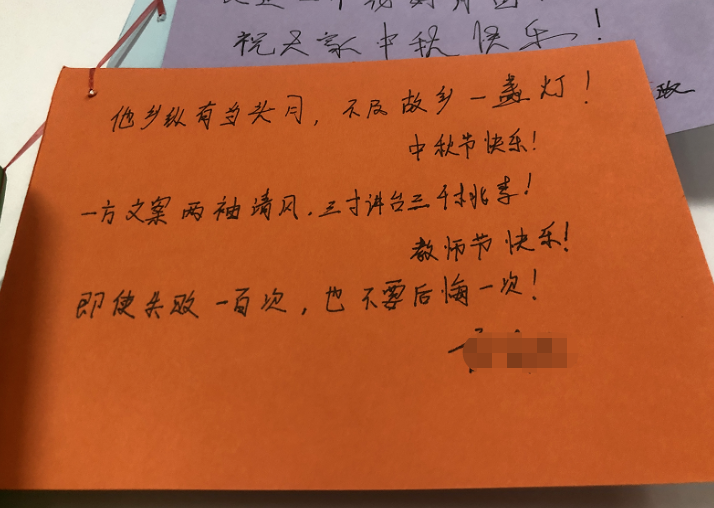 祝大家中秋快乐!
他乡纵有当头月,不及故乡一盏灯!
中秋节快乐!
一方文案两袖清风,三寸讲台三千桃李!
教师节快乐!
即使失败一百次,也不要后悔一次!